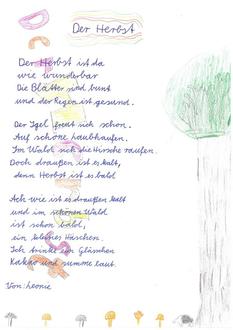 Der Herbst
Der Herbst ist da
wie wunderbar
Die Blätter sind bunt
und der Regen ist gesund.
Der Igel freut sich schon.
Auf schöne Laubhaufen.
Im Wald sich die Hirsche raufen.
Doch draußen ist es kalt,
denn Herbst ist es bald
Ach wie ist es draußen kalt
und im schönen Wald
ist schon bald,
ein kleines Häschen.
Ich trinke ein Gläschen
Kakao und summe laut.
Von: Leonie